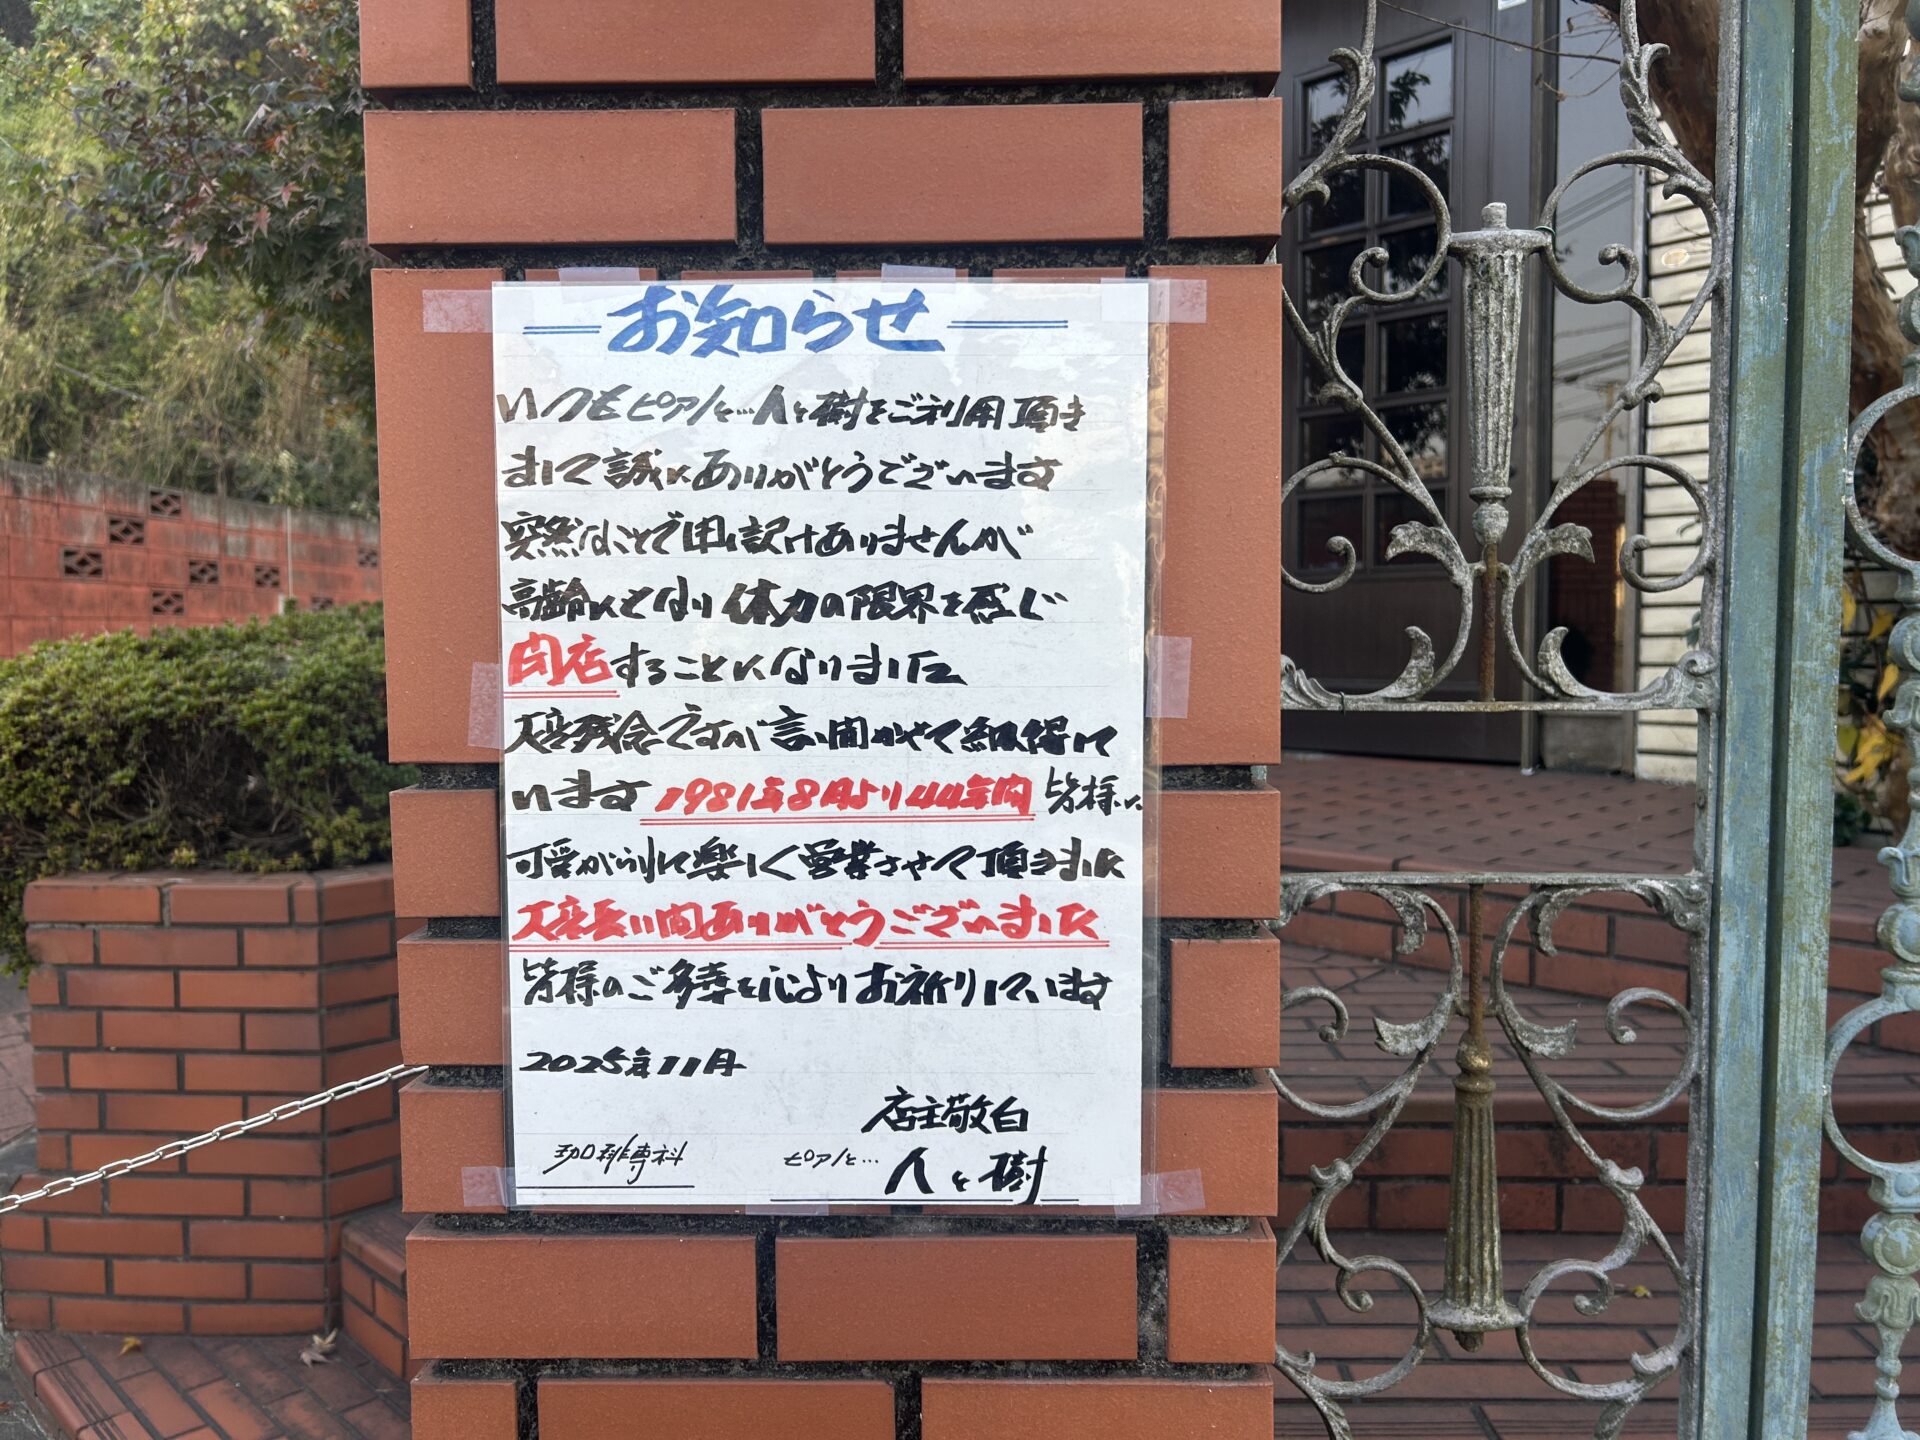 お知らせ
いつもピアノと…人と樹をご利用頂き
まして誠にありがとうございます
突然なことで申し訳けありませんが
高齢となり体力の限界を感じ
閉店することになりました
大変残念ですが言い聞かせて納得して
います 1981年8月より44年間 皆様に
可愛がられ楽しく営業させて頂きました
大変長い間ありがとうございました
皆様のご多幸を心よりお祈りしています
2025年11月
店主敬白
珈琲専科 ピアノと… 人と樹